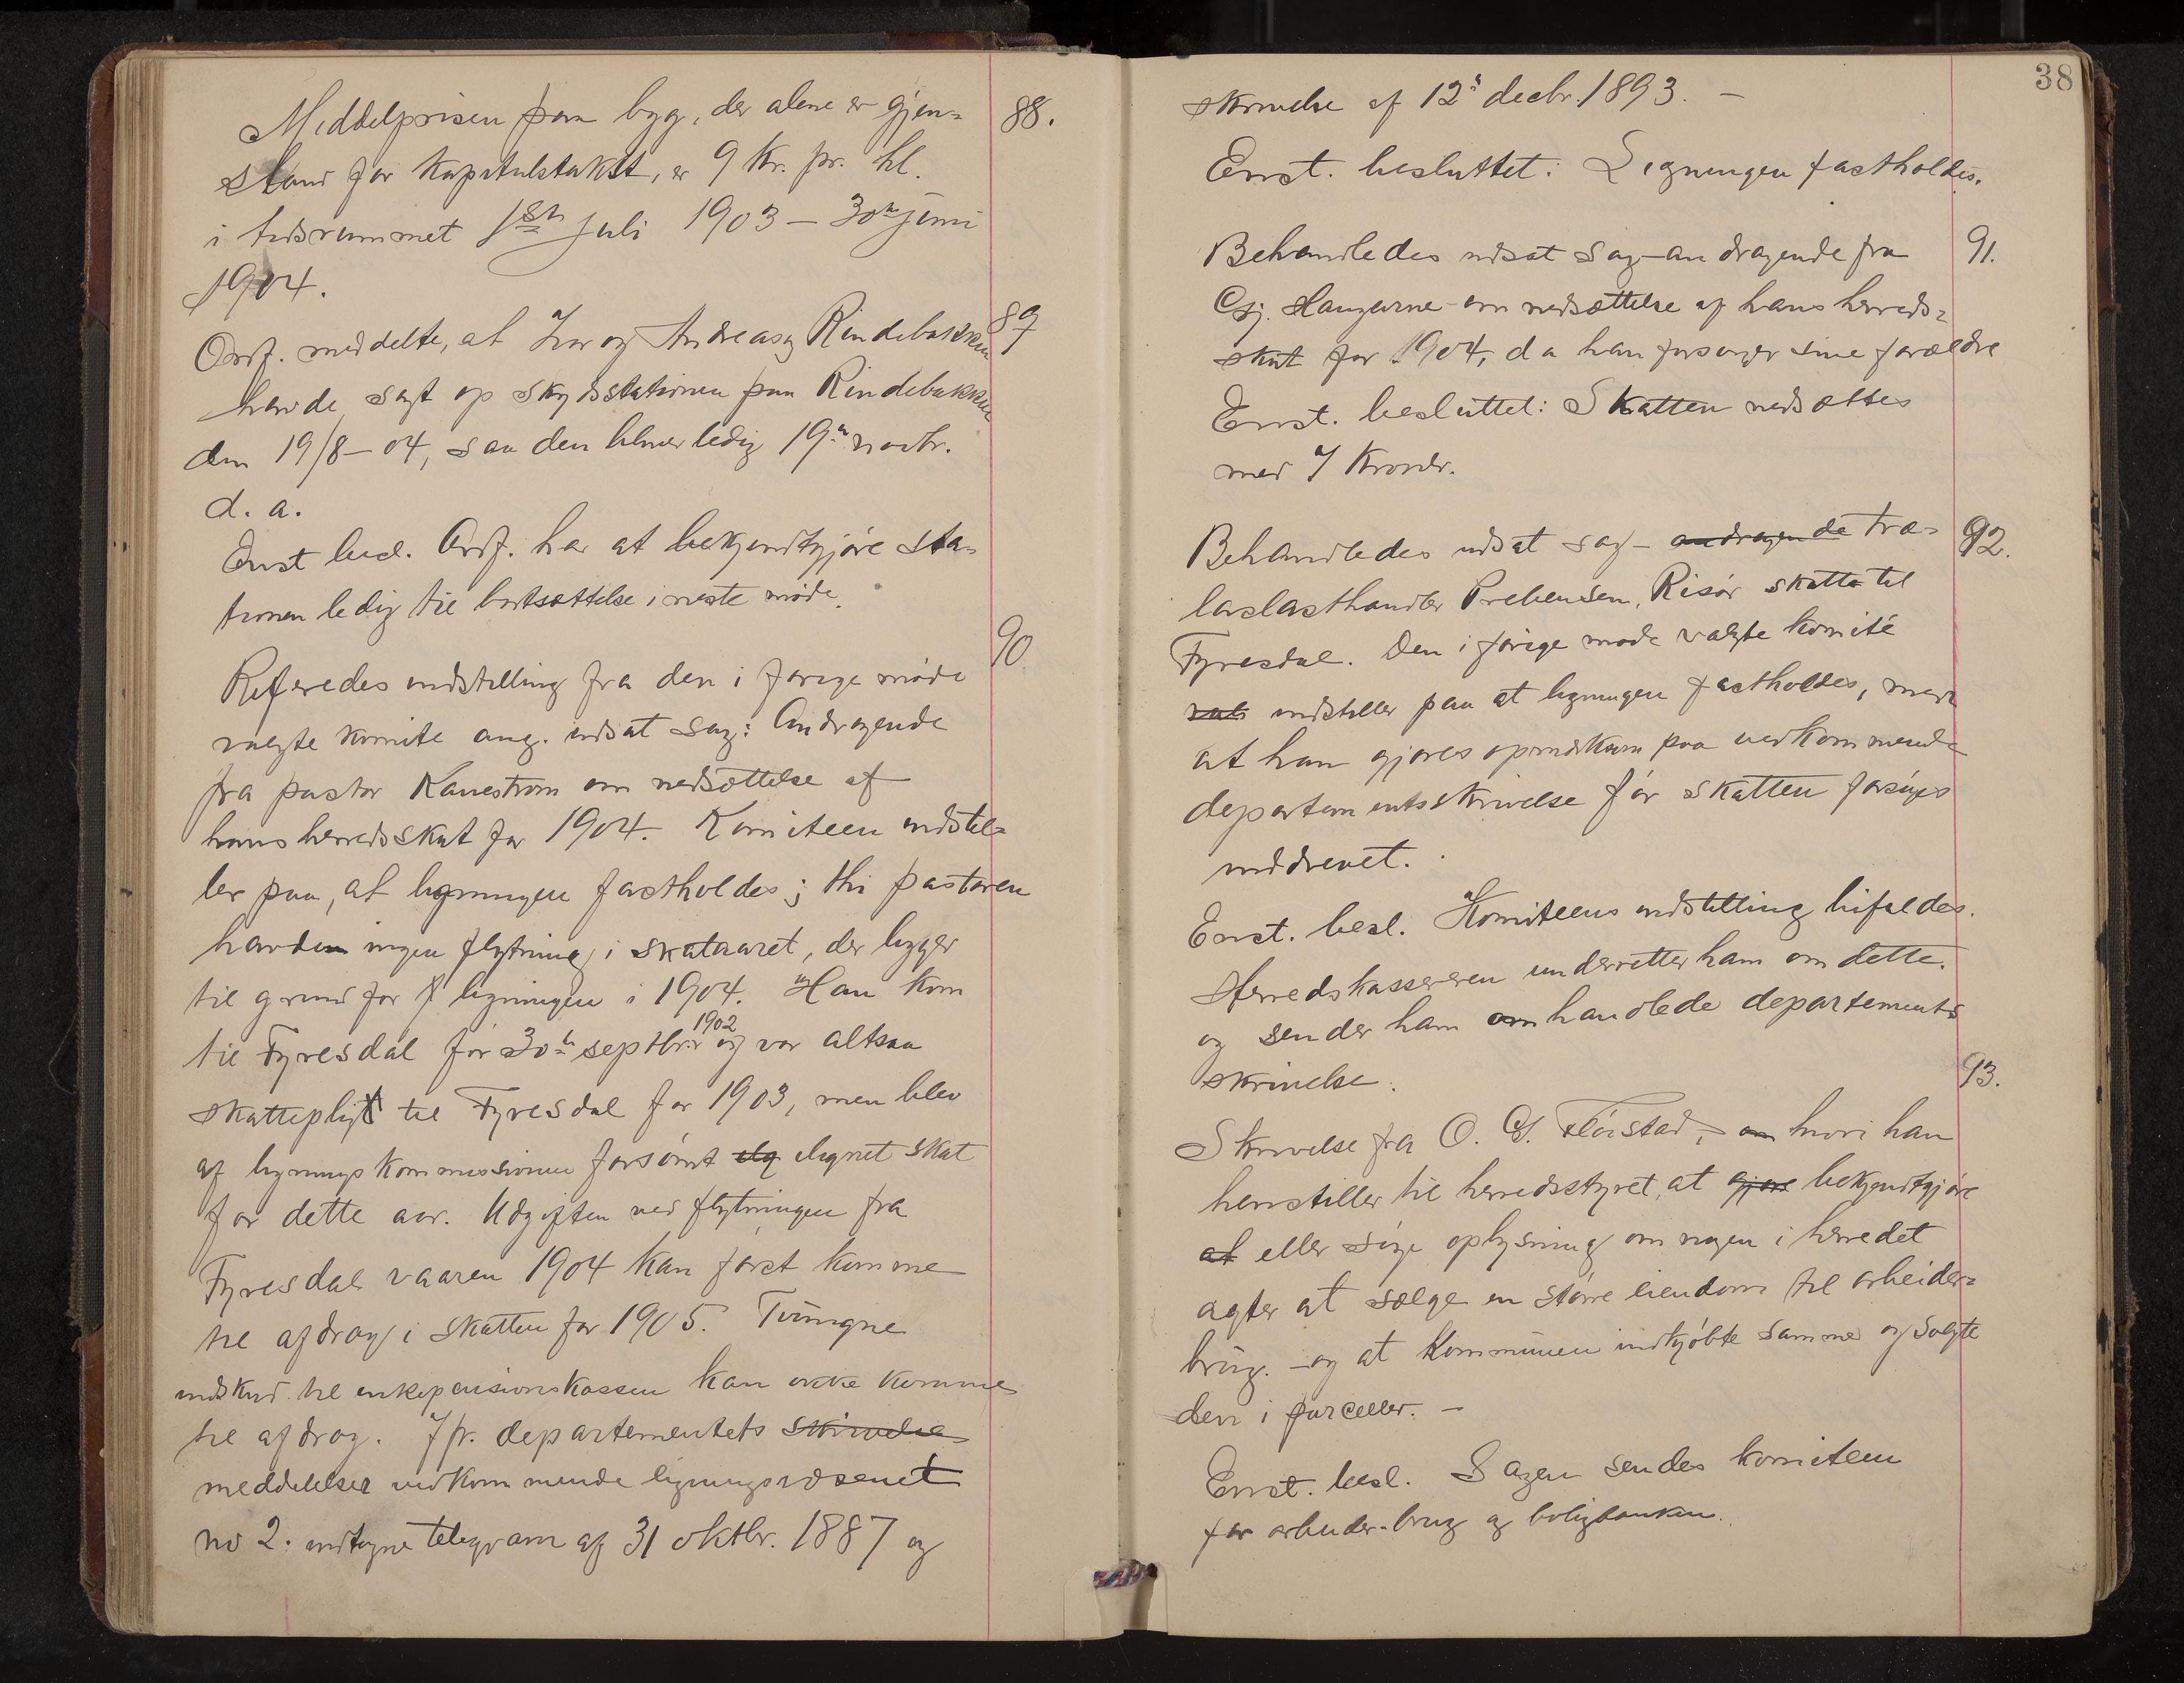 88.
Middelprisen paa byg, der alene er gjen-
stand for kapitulstakst, er 9 kr. pr. hl.
i tidsrummet 1ste juli 1903 – 30te juni
1904.
89
Ordf. meddelte, at Ivar og Andreas Rindebakken
havde sagt op skydsstationen paa Rindebakken
den 19/8–04, saa den bliver ledig 19de novbr.
d. a.
Enst besl. Ordf. har at bekjendtgjøre sta-
tionen ledig til bortsættelse i neste møde.
90
Referedes indstilling fra den i forige møde
valgte komite ang. udsat sag: Andragende
fra pastor Kanestrøm om nedsættelse af
hans herredsskat for 1904. Komiteen indstil-
ler paa, at ligningen fastholdes; thi pastoren
havde ingen flytning i skataaret, der ligger
til grund for ligningen i 1904. Han kom
til Fyresdal før 30te septbr. 1902 og var altsaa
skattepligt til Fyresdal for 1903, men blev
af ligningskommissionen forsømt ilignet skat
for dette aar. Udgiften ved flytningen fra
Fyresdal vaaren 1904 kan først komme
til afdrag i skatten for 1905. Tvungne
indskud til enkepensionskassen kan ikke komme
til afdrag. Jfr. departementets skrivelse
meddelelser vedkommende ligningsvæsenet
no 2. indtagne telegram af 31 oktbr. 1887 og
38
skrivelse af 12te decbr. 1893. –
Enst. besluttet: Ligningen fastholdes.
91.
Behandledes udsat sag – andragende fra
Gj. Haugerne om nedsættelse af hans herreds-
skat for 1904, da han forsørger sine forældre
Enst. besluttet: Skatten nedsættes
med 7 kroner.
92.
Behandledes udsat sag – andragende træ-
lasthandler Prebensen, Risør skatte til
Fyresdal. Den i forige møde valgte komité
indstiller paa at ligningen fastholdes, men
at han gjøres opmerksom paa vedkommende
departementsskrivelse før skatten forsøges
inddrevet.
Enst. besl. Komiteens indstilling bifaldes.
Herredskassereren underretter ham om dette.
og sender ham omhandlede departements
skrivelse.
93.
Skrivelse fra O. G. Fløistad, – om hvori han
henstiller til herredsstyret, at gjøre bekjendtgjøre
at eller søge oplysning om nogen i herredet
agter at sælge en større eiendom til arbeider-
brug. – og at kommunen indkjøbte samme og solgte
den i parceller. –
Enst. besl. Sagen sendes komiteen
for arbeider-brug og boligbanken.